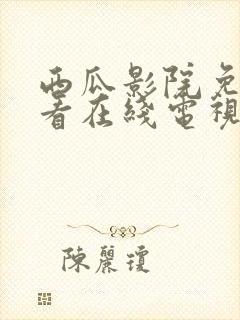 西瓜影院免
看在线電視
陳麗瓊